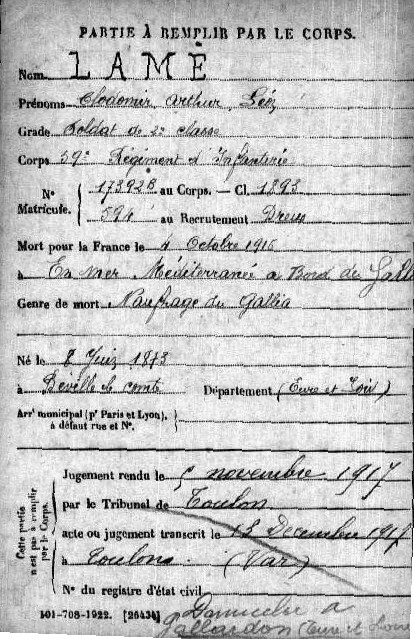 PARTIE À REMPLIR PAR LE CORPS.
Nom LAME
Prénoms Clodomir Arthur Léo
Grade Soldat de 2e classe
Corps 59e Régiment d'Infanterie
No Matricule. 17392B au Corps. — Cl. 1893
594 au Recrutement Dreux
Mort pour la France le 4 Octobre 1916
à En mer Méditerranée à Bord du Gallia
Genre de mort Naufrage du Gallia
Né le 8 Juin 1873
à Béville le comte Département (Eure et Loir)
Arrt municipal (pr Paris et Lyon),
à défaut rue et No.
Cette partie n'est pas à remplir par le Corps.
Jugement rendu le 5 novembre 1917
par le Tribunal de Toulon
acte ou jugement transcrit le 13 Décembre 1917
à Toulon (Var)
No du registre d'état civil
101-708-1922. [26434]
Domicilié à
Gallardon (Eure et Loir